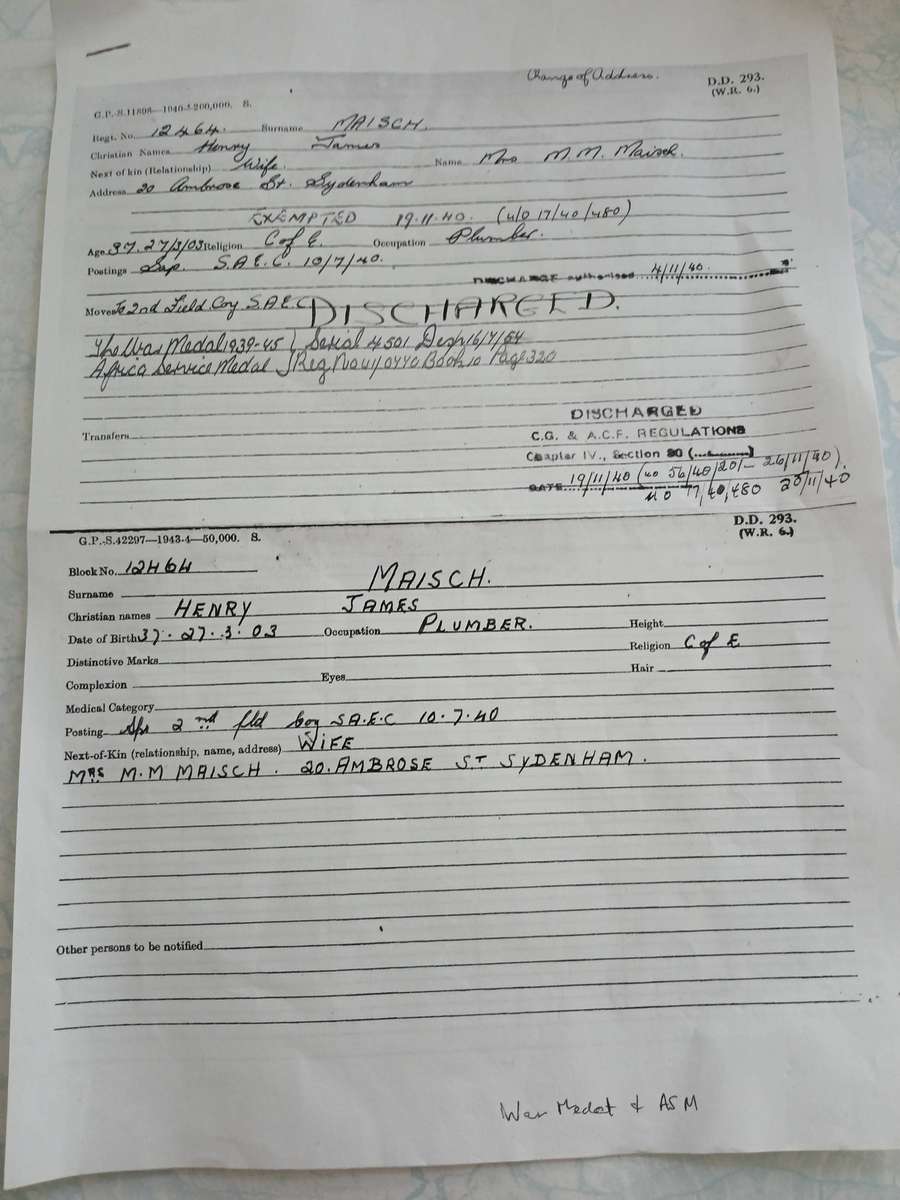 Change of Address.
D.D. 293.
(W.R. 6.)
G.P.-S.11808—1940-1-200,000. S.
Regt. No. 12464. Surname MAISCH.
Christian Names Henry James
Next of kin (Relationship) Wife. Name Mrs M. M. Maisch.
Address 20 Ambrose St. Sydenham
EXEMPTED 19.11.40. (40 17/40/480)
Age 37. 27/3/03 Religion C of E. Occupation Plumber.
Postings Sap. S.A.E.C. 10/7/40.
DISCHARGE authorised 4/11/40.
Moves To 2nd Field Coy S.A.E.C. DISCHARGED.
The War Medal 1939-45 } Serial 4501 Desp 16/7/54
Africa Service Medal } Reg No Book 10 Page 320
Transfers
DISCHARGED
C.G. & A.C.F. REGULATIONS
Chapter IV., Section
DATE 19/11/40 (40 56/40/201- 26/11/40).
40 77,40,480 20/11/40
D.D. 293.
(W.R. 6.)
G.P.-S.42297—1943-4—50,000. S.
Block No. 12464
Surname MAISCH.
Christian names HENRY JAMES
Date of Birth 37. 27. 3. 03 Occupation PLUMBER. Height
Distinctive Marks Religion C of E
Complexion Eyes Hair
Medical Category
Posting Spr 2nd fld Coy S.A.E.C 10.7.40
Next-of-Kin (relationship, name, address) WIFE
MRS M.M MAISCH. 20. AMBROSE ST SYDENHAM.
Other persons to be notified
War Medal & ASM